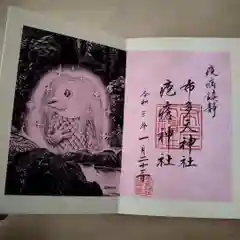 疫病鎮静
布多天神社
疱瘡神社
令和三年一月二十二日